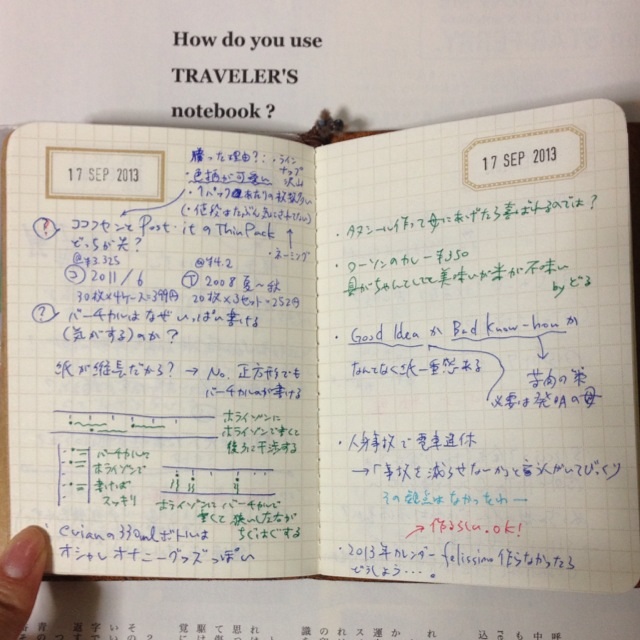 How do you use
TRAVELER'S
notebook ?
17 SEP 2013
勝った理由?:・ライン
ナップ
沢山
・色柄が可愛い
・1パックあたりの枚数多い
(・値段はたぶん気にされてない)
・ネーミング
? ココフセンと Post-itのThinPack
どっちが先?
@¥3.325
② 2011/6
30枚×4ケース=399円
@¥4.2
① 2008 夏〜秋
20枚×3セット=252円
? バーチカルはなぜいっぱい書ける
(気がする)のか?
紙が縦長だから? → No. 正方形でも
バーチカルのが書ける
ホライゾンに
ホライゾンで書くと
後ろに干渉する
バーチカルに
ホライゾンで
書けば
スッキリ
ホライゾンに バーチカルで
書くと 狭い
evianの330mlボトルは
オシャレオナニーグッズっぽい
17 SEP 2013
作って母にあげたら喜ばれるのでは?
・ローソンのカレー¥350
美味いが米が不味い
by
・Good Idea か Bad Know-how か
なんてなく紙一重感ある
苦肉の策
必要は発明の母
・人身事故で電車遅休
→「事故を減らせないか」と
その視点はなかったわー
→ 作ろらしい.OK!
・2013年カレンダー felissimo 作らなかったら
どうしよう…。